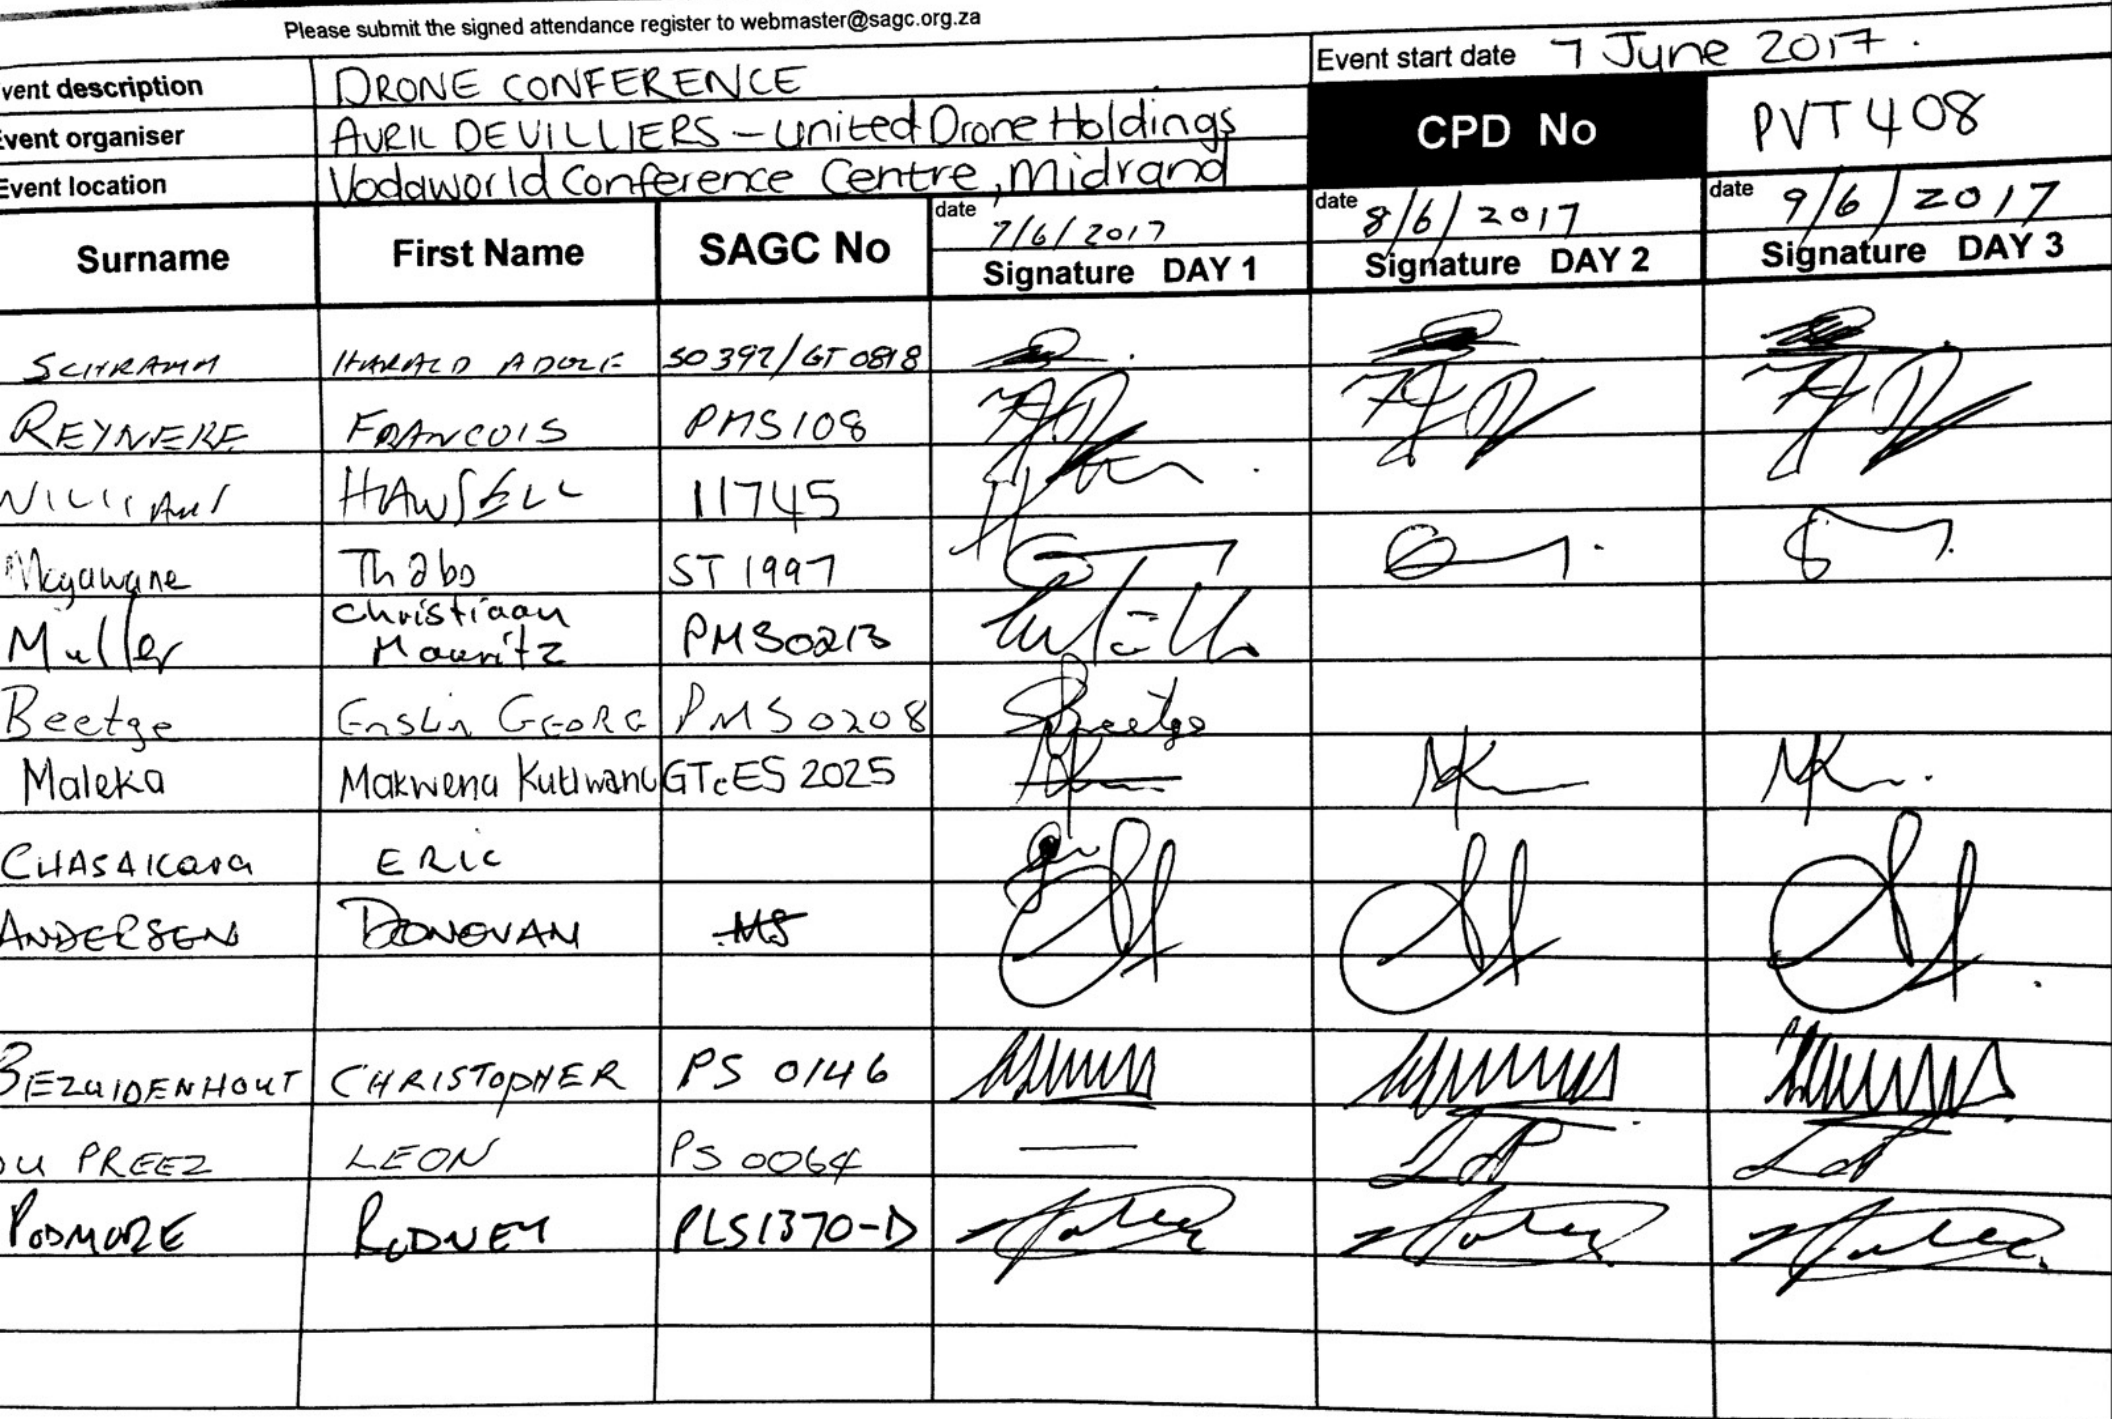 Please submit the signed attendance register to webmaster@sagc.org.za
vent description DRONE CONFERENCE Event start date 7 June 2017.
Event organiser AVRIL DE VILLIERS - United Drone Holdings CPD No PVT 408
Event location Vodaworld Conference Centre, Midrand
Surname First Name SAGC No date 7/6/2017 Signature DAY 1 date 8/6/2017 Signature DAY 2 date 9/6/2017 Signature DAY 3
SCHRAMM HARALD ADOLF SO392/GT0818
REYNEKE FRANCOIS PMS108
HANSELL 11745
Thabo ST1997
Muller Christiaan Mauritz PMS0213
Beetge Enslin GEORG PMS0208 Beetge
Maleka Makwena Kutlwano GTcES 2025
CHASAKARA ERIC
ANDERSEN DONOVAN MS
BEZUIDENHOUT CHRISTOPHER PS 0146
DU PREEZ LEON PS 0064 —
PODMORE RODNEY PLS1370-D